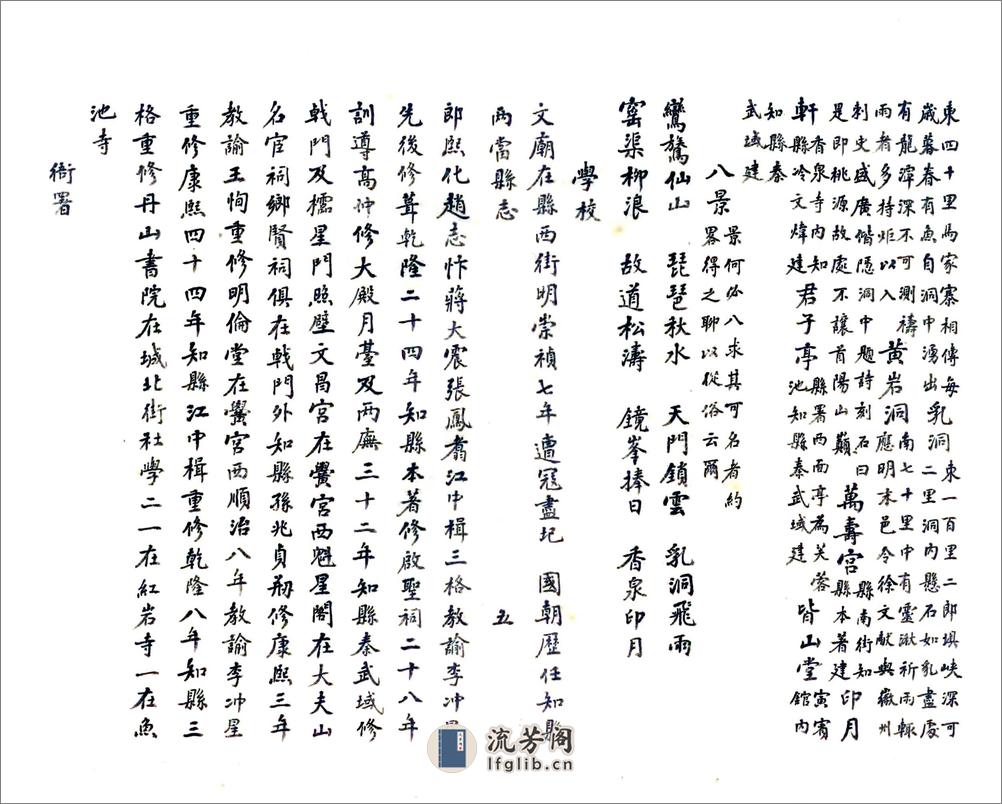 東四十里馬家寨相傳每
歲暮春有魚自洞中湧出
乳洞
東一百里二郎壩峽深可
二里洞內懸石如乳盡處
有龍潭深不可測禱
雨者多持炬以入
黃岩洞
南七十里中有靈湫祈雨輒
應明末邑令徐文献與徽州
刺史盛廣偕隱洞中題詩刻石曰
是即桃源故處不讓首陽山巔
萬壽宮
縣南街知
縣本著建
印月
軒
香泉寺內知
縣冷文煒建
君子亭
縣署西面亭為芙蓉
池知縣秦武域建
皆山堂
寅賓
館內
知縣秦
武域建
八景
景何必八求其可名者約
畧得之聊以從俗云爾
鸞驁仙山 琵琶秋水 天門鎖雲 乳洞飛雨
窰渠柳浪 故道松濤 鏡峯捧日 香泉印月
學校
文廟在縣西街明崇禎七年遭冦盡圮 國朝歷任知縣
兩當縣志 五
郎熙化趙志忭蔣大震張鳳翥江中楫三格教諭李冲星
先後修葺乾隆二十四年知縣本著修啟聖祠二十八年
訓導高仲修大殿月臺及兩廡三十二年知縣秦武域修
戟門及櫺星門照壁文昌宮在黌宮西魁星閣在大夫山
名宦祠鄉賢祠俱在戟門外知縣孫兆貞剏修康熙三年
教諭王恂重修明倫堂在黌宮西順治八年教諭李冲星
重修康熙四十四年知縣江中楫重修乾隆八年知縣三
格重修丹山書院在城北街社學二一在紅岩寺一在魚
池寺
衙署
流芳阁
lfglib.cn